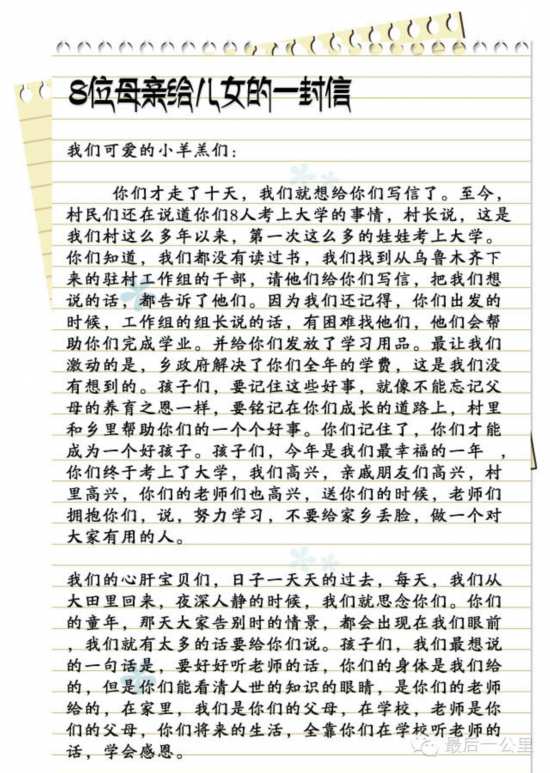 8位母亲给儿女的一封信
我们可爱的小羊羔们：
你们才走了十天，我们就想给你们写信了。至今，
村民们还在说道你们8人考上大学的事情，村长说，这是
我们村这么多年以来，第一次这么多的娃娃考上大学。
你们知道，我们都没有读过书，我们找到从乌鲁木齐下
来的驻村工作组的干部，请他们给你们写信，把我们想
说的话，都告诉了他们。因为我们还记得，你们出发的
时候，工作组的组长说的话，有困难找他们，他们会帮
助你们完成学业。并给你们发放了学习用品。最让我们
激动的是，乡政府解决了你们全年的学费，这是我们没
有想到的。孩子们，要记住这些好事，就像不能忘记父
母的养育之恩一样，要铭记在你们成长的道路上，村里
和乡里帮助你们的一个个好事。你们记住了，你们才能
成为一个好孩子。孩子们，今年是我们最幸福的一年，
你们终于考上了大学，我们高兴，亲戚朋友们高兴，村
里高兴，你们的老师们也高兴，送你们的时候，老师们
拥抱你们，说，努力学习，不要给家乡丢脸，做一个对
大家有用的人。
我们的心肝宝贝们，日子一天天的过去，每天，我们从
大田里回来，夜深人静的时候，我们就思念你们。你们
的童年，那天大家告别时的情景，都会出现在我们眼前
，我们就有太多的话要给你们说。孩子们，我们最想说
的一句话是，要好好听老师的话，你们的身体是我们给
的，但是你们能看清人世的知识的眼睛，是你们的老师
给的，在家里，我们是你们的父母，在学校，老师是你
们的父母，你们将来的生活，全靠你们在学校听老师的
话，学会感恩。
最后一公里